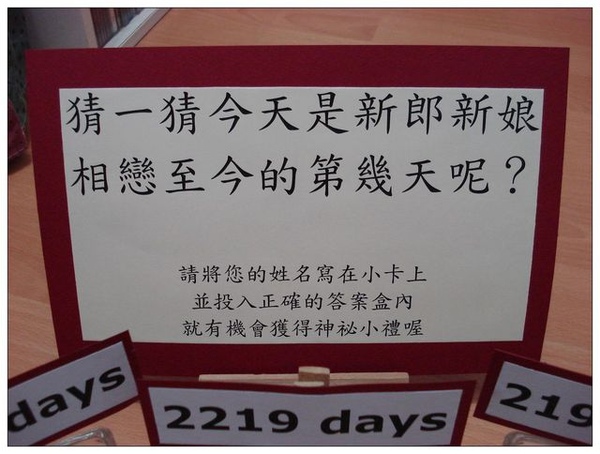 猜一猜今天是新郎新娘
相戀至今的第幾天呢？
請將您的姓名寫在小卡上
並投入正確的答案盒內
就有機會獲得神祕小禮喔
days
2219 days
219